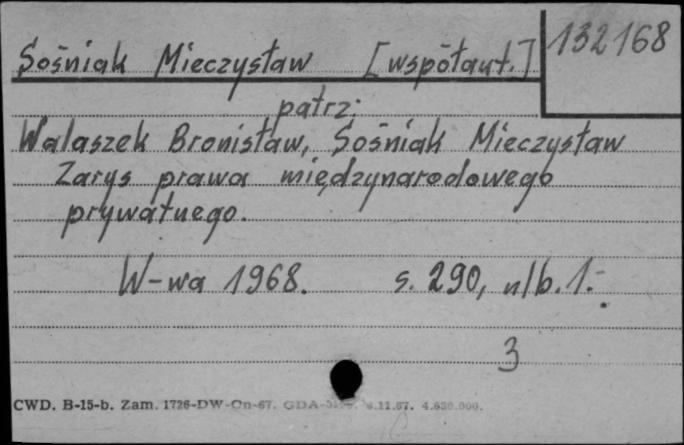 Sośniak Mieczysław [współaut.] 132168
patrz:
Walaszek Bronisław, Sośniak Mieczysław
Zarys prawa międzynarodowego
prywatnego.
W-wa 1968. s. 290, nlb. 1.-
3
CWD. B-15-b. Zam. 1726-DW-On-67. .11.67. 4.630.000.